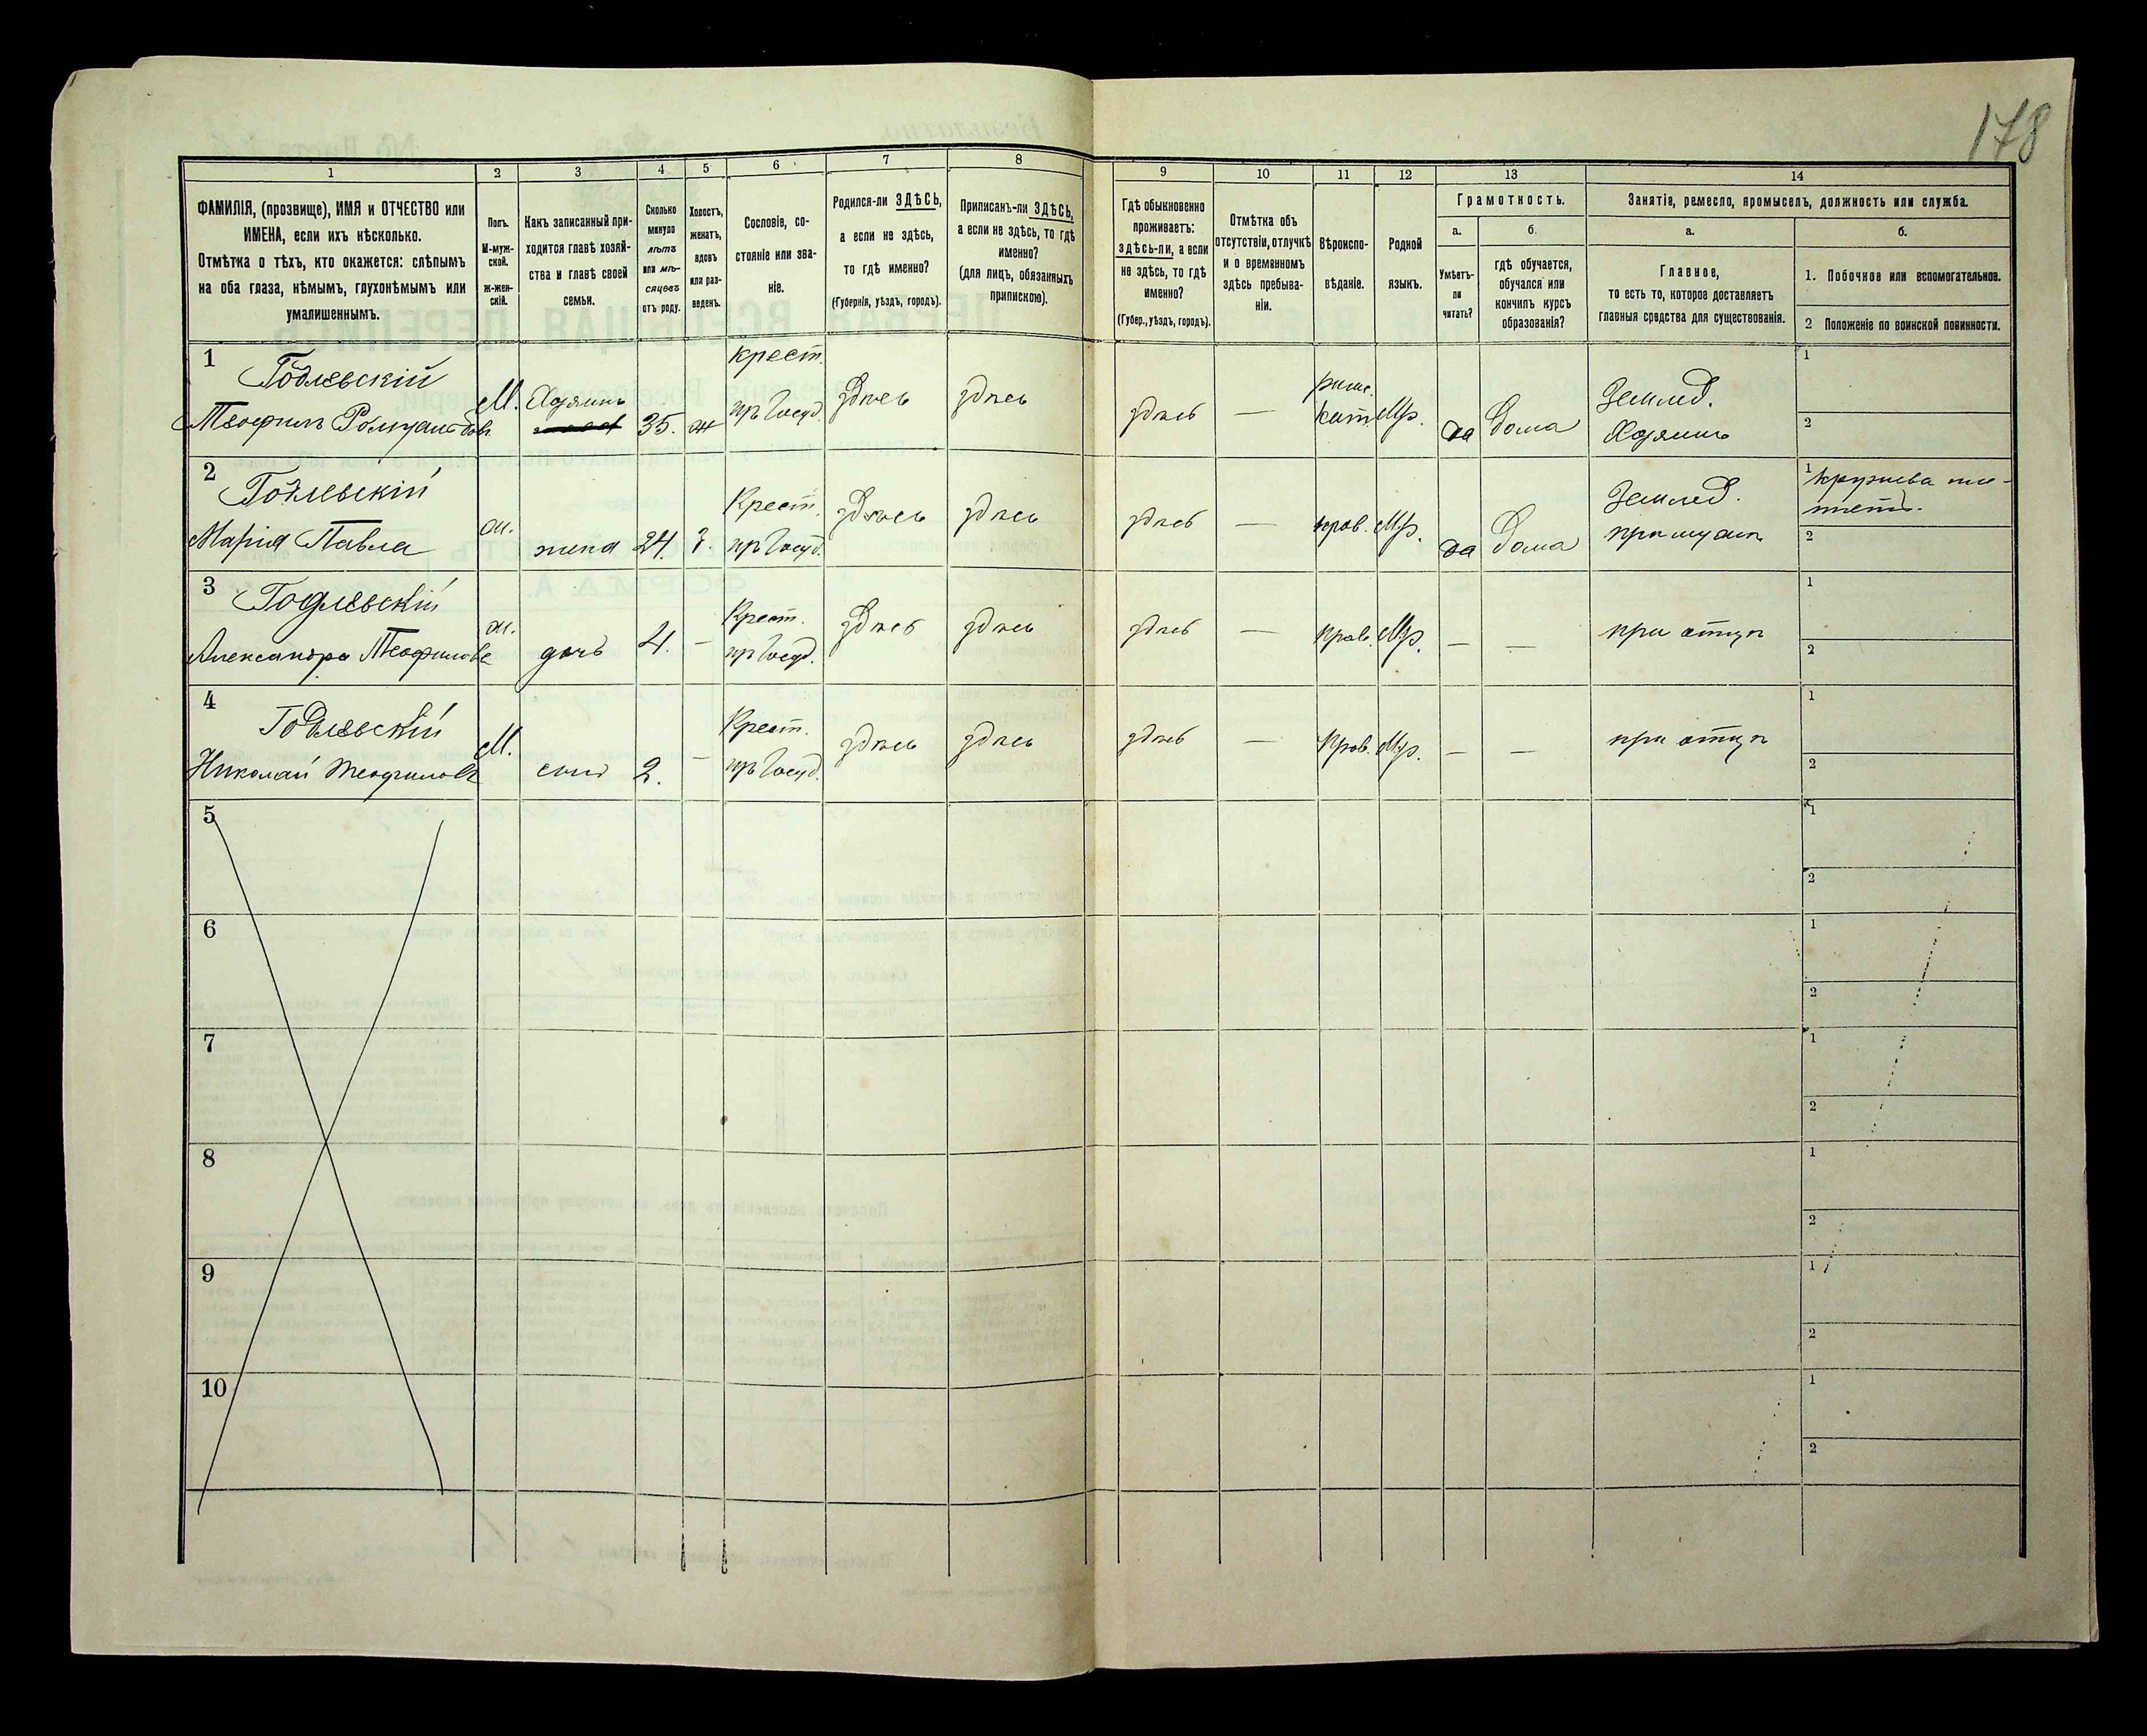 178
1
2
3
4
5
6
7
8
9
10
11
12
13
14
ФАМИЛІЯ, (прозвище), ИМЯ и ОТЧЕСТВО или
ИМЕНА, если ихъ нѣсколько.
Отмѣтка о тѣхъ, кто окажется: слѣпымъ
на оба глаза, нѣмымъ, глухонѣмымъ или
умалишеннымъ.
Полъ.
М-муж-
ской.
Ж-жен-
скій.
Какъ записанный при-
ходится главѣ хозяй-
ства и главѣ своей
семьи.
Сколько
минуло
лѣтъ
или мѣ-
сяцевъ
отъ роду.
Холостъ,
женатъ,
вдовъ
или раз-
веденъ.
Сословіе, со-
стояніе или зва-
ніе.
Родился-ли ЗДѢСЬ,
а если не здѣсь,
то гдѣ именно?
(Губернія, уѣздъ, городъ).
Приписанъ-ли ЗДѢСЬ,
а если не здѣсь, то гдѣ
именно?
(для лицъ, обязанныхъ
припискою).
Гдѣ обыкновенно
проживаетъ:
здѣсь-ли, а если
не здѣсь, то гдѣ
именно?
(Губер., уѣздъ, городъ).
Отмѣтка объ
отсутствіи, отлучкѣ
и о временномъ
здѣсь пребыва-
ніи.
Вѣроиспо-
вѣданіе.
Родной
языкъ.
Грамотность.
а.
Умѣетъ-
ли
читать?
б.
гдѣ обучается,
обучался или
кончилъ курсъ
образованія?
Занятіе, ремесло, промыселъ, должность или служба.
а.
Главное,
то есть то, которое доставляетъ
главныя средства для существованія.
б.
1. Побочное или вспомогательное.
2 Положеніе по воинской повинности.
1
Годлевскій
Теофилъ Ромуальдовъ
М.
Хозяинъ
35.
ж
крест.
пр Госуд.
здѣсь
здѣсь
здѣсь
—
римс.
кат.
Мр.
да
дома
Землед.
Хозяинъ
1
2
2
Годлевскій
Марія Павла
ж.
жена
24.
з.
Крест.
пр Госуд.
здѣсь
здѣсь
здѣсь
—
прав.
Мр.
да
дома
Землед.
при мужѣ
1
кружева пле-
тетъ.
2
3
Годлевскій
Александра Теофилова
ж.
дочь
4.
—
Крест.
пр Госуд.
здѣсь
здѣсь
здѣсь
—
прав.
Мр.
—
—
при отцѣ
1
2
4
Годлевскій
Николай Теофиловъ
М.
сынъ
2.
—
Крест.
пр Госуд.
здѣсь
здѣсь
здѣсь
—
Прав.
Мр.
—
—
при отцѣ
1
2
5
1
2
6
1
2
7
1
2
8
1
2
9
1
2
10
1
2